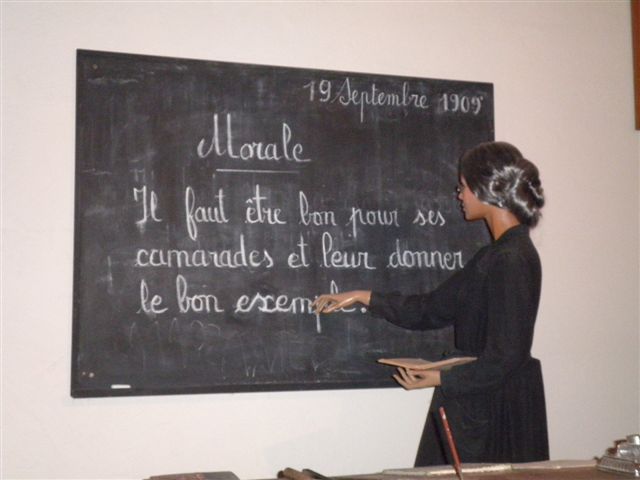 19 Septembre 1909
Morale
Il faut être bon pour ses
camarades et leur donner
le bon exemple.